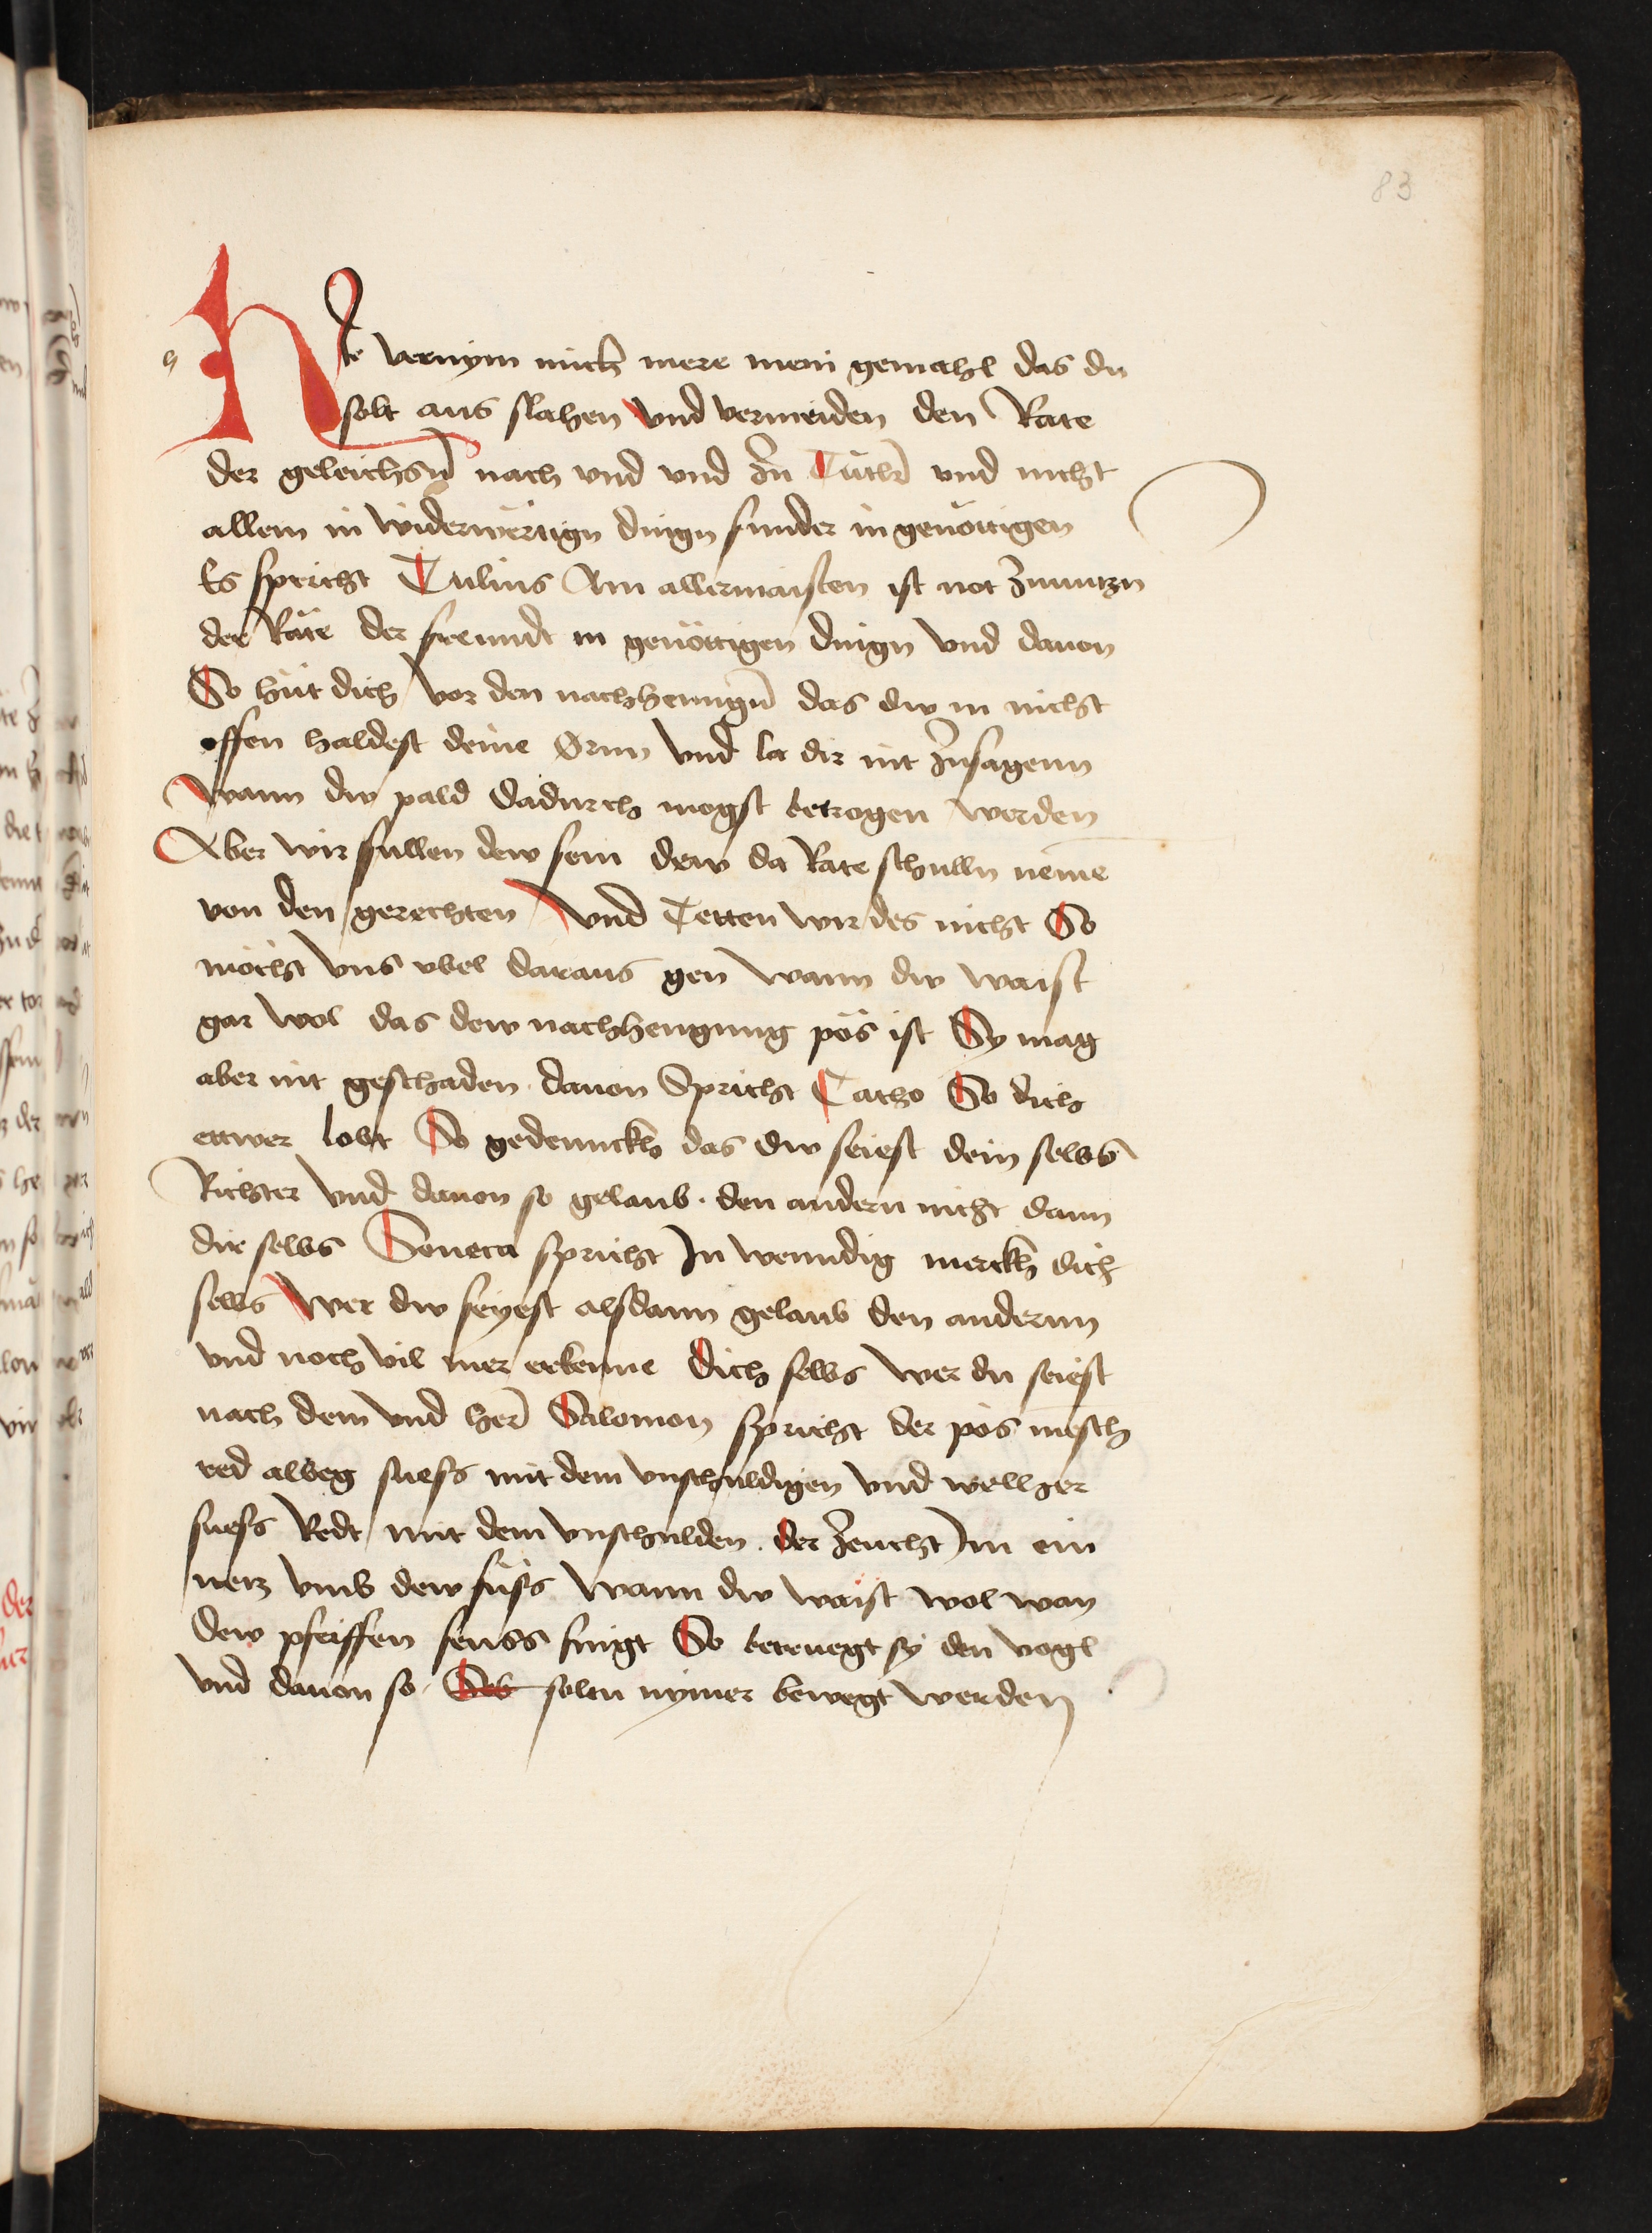 83
Nte vernym mich mere mein gemahl das du
solt aus slahen vnd vermeiden den Rate
der geleichsn̄ nach vnd vnd zu Tutlr̄ vnd nicht
allem in widerwërtign dingn sunder in genöttigen
Es spricht Tulius Am allermaisten ist not zunutzn
der Räte der freundt in genöttigen dingn vnd dauon
So hüt dich vor den nachhenngn̄ das dw in nicht
offen haldest deine Ornn vnd la dir nit zusagenn
Wann dw pald dadurch mogst betrogen werden
Aber wir sullen dew sein dew da Rate schulln neme
von den gerechten vnd Tetten wir des nicht So
möcht vns vbel daraus gen wann dw waist
gar wol das dew nachhengung pös ist Sy mag
aber nit geschaden. dauon Spricht Catho So dich
ettwer lobt So gedennckh das dw seiest dein selbs
Richter vnd dauon so gelaub. den andern nicht dann
dir selbs Seneca spricht In wenndig merckh dich
selbs Wer dw seyest alsdann gelaub den andernn
vnd noch vil mer erkenne dich selbs wer du seiest
nach dem vnd her̄ Salomon spricht der pös mēsch
red albeg suess mit dem vnschuldigen vnd wellher
suess Redt mit dem vnschulden. der zeucht Im ein
netz vmb dew füss Wann dw waist wol wan
dew pfeiffen seuss singt So betruegt sy den vogl
vnd dauon so Sol soltu nymer bewegt werden